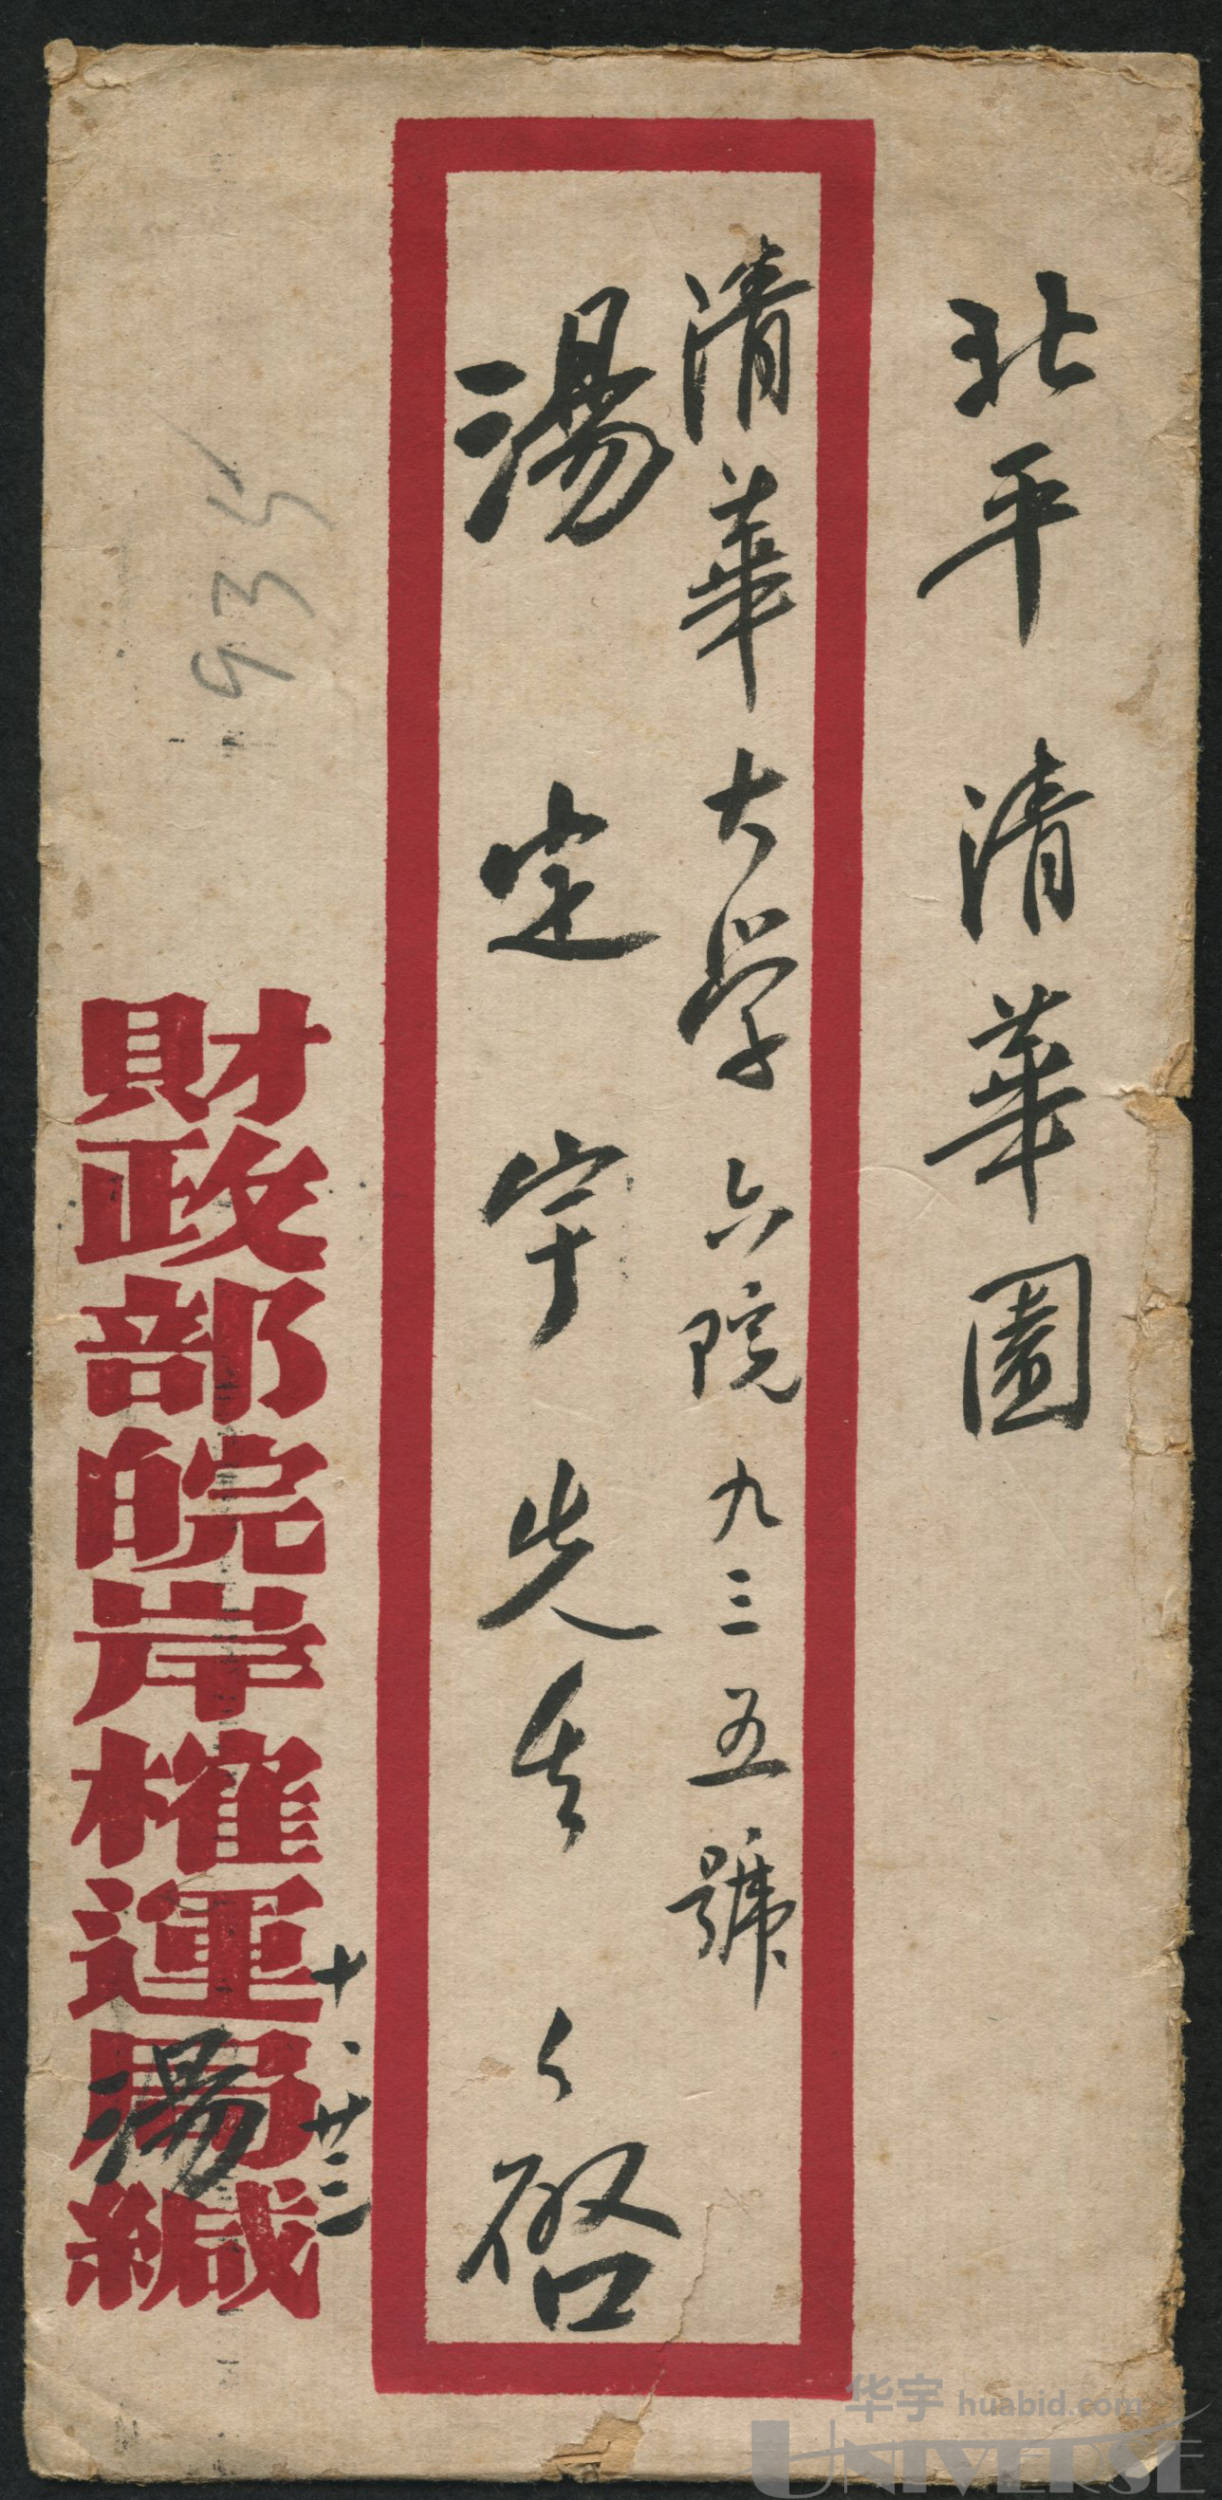 北平 清華園
清華大學六院九三五號
湯定宇先生啓
財政部皖岸榷運局緘
湯
十、廿三
935
华宇 huabid.com
UNIVERSE